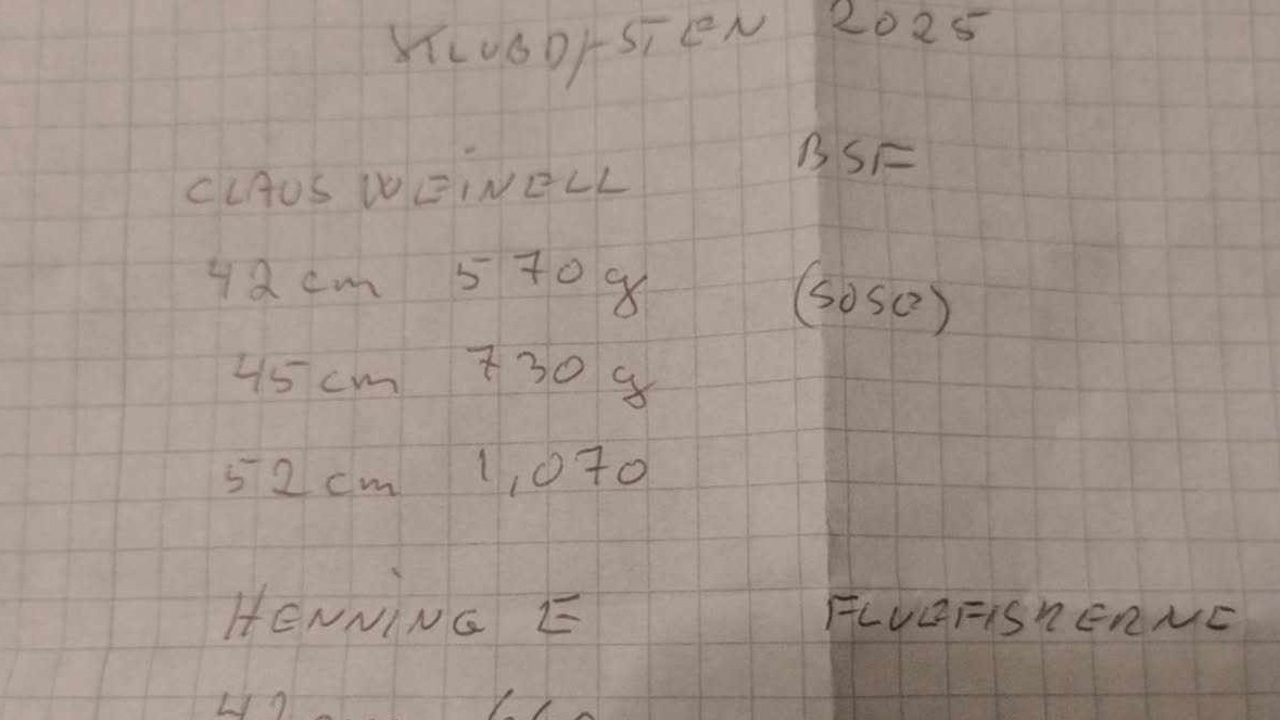 KLUBDYSTEN 2025
CLAUS WEINELL BSF
42 cm 570 g (SOSE)
45 cm 730 g
52 cm 1,070
HENNING E FLUEFISKERNE
42